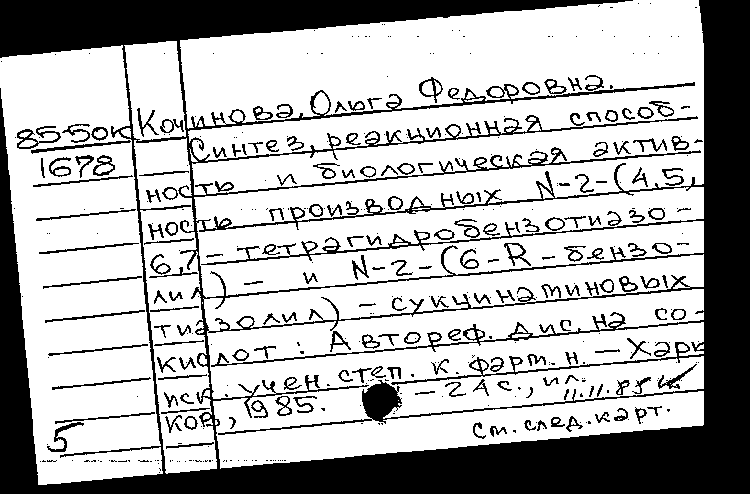 85-5ок Кочинова, Ольга Федоровна.
1678 Синтез, реакционная способ-
ность и биологическая актив-
ность производных N-2-(4,5,
6,7-тетрагидробензотиазо-
лил)- и N-2-(6-R-бензо-
тиазолил)-сукцинатиновых
кислот : Автореф. дис. на со-
иск. учен. степ. к. фарм. н. - Харь
ков, 1985. - 24 с., ил.
11.11.85
5 См. след. карт.